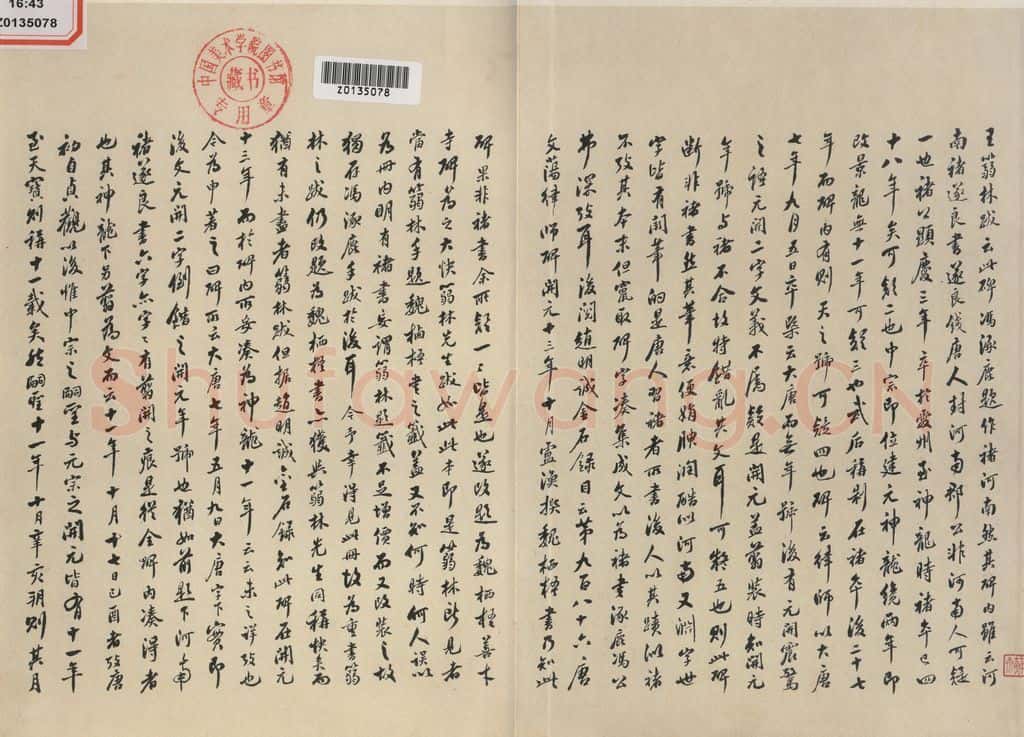 16:43
Z0135078
中国美术学院图书馆
藏书
专用章
Z0135078
王蒻林跋云此碑馮涿鹿題作褚河南然其碑内雖云河
南褚遂良書遂良唐人封河南郡公非河南人可疑
一也褚公顯慶三年卒於愛州至神龍時褚卒已四
十八年矣可疑二也中宗即位建元神龍纔兩年即
改景龍無十一年可疑三也武后稱制在褚卒後二十七
年而碑内有則天之號可疑四也碑云律師以大唐
七年九月五日卒槩云大唐而無年號後有元開震驚
之語元開二字文義不屬疑是開元益翦裝時知開元
年號与褚不合故特錯亂其文耳可疑五也則此碑
斷非褚書然其筆便娟腴潤酷似河南又淵字世
字皆有闕筆的是唐人習褚者所書後人以其蹟似褚
不攷其本末但竄取碑字湊集成文以為褚書涿鹿馮公
弗深攷耳後閱趙明誠金石録目云第九百八十六唐
文蕩律師碑開元十三年十月靈漢撰魏栖梧書乃知此
碑果非褚書余所疑一一皆是也遂改題為魏栖梧善才
寺碑為之大快蒻林先生跋如此此本即是蒻林所見者
當有蒻林手題魏栖梧書之籤蓋又不知何時何人誤以
為冊内明有褚書妄謂蒻林題籤不足增價而又改裝之故
獨存馮涿鹿手跋於後耳 今予幸得見此冊故為重書蒻
林之跋仍改題為魏栖梧書獲與蒻林先生同稱快而
猶有未盡者蒻林跋但据趙明誠金石録知此碑在開元
十三年而於碑内所妄湊為神龍十一年云云未之詳攷也
今為申著之曰碑所云大唐七年五月九日大唐字下實即
後文元開二字倒錯之開元年號也猶如前題下河南
褚遂良書六字六字一一有翦開之痕是從全碑内湊得者
也其神龍下另翦為文而云十一年十月十七日己酉者攷唐
初自貞觀以後惟中宗之嗣聖与元宗之開元皆有十一年
至天寶則稱十一載矣然嗣聖十一年十月辛亥朔則其月
Shufawang.CN